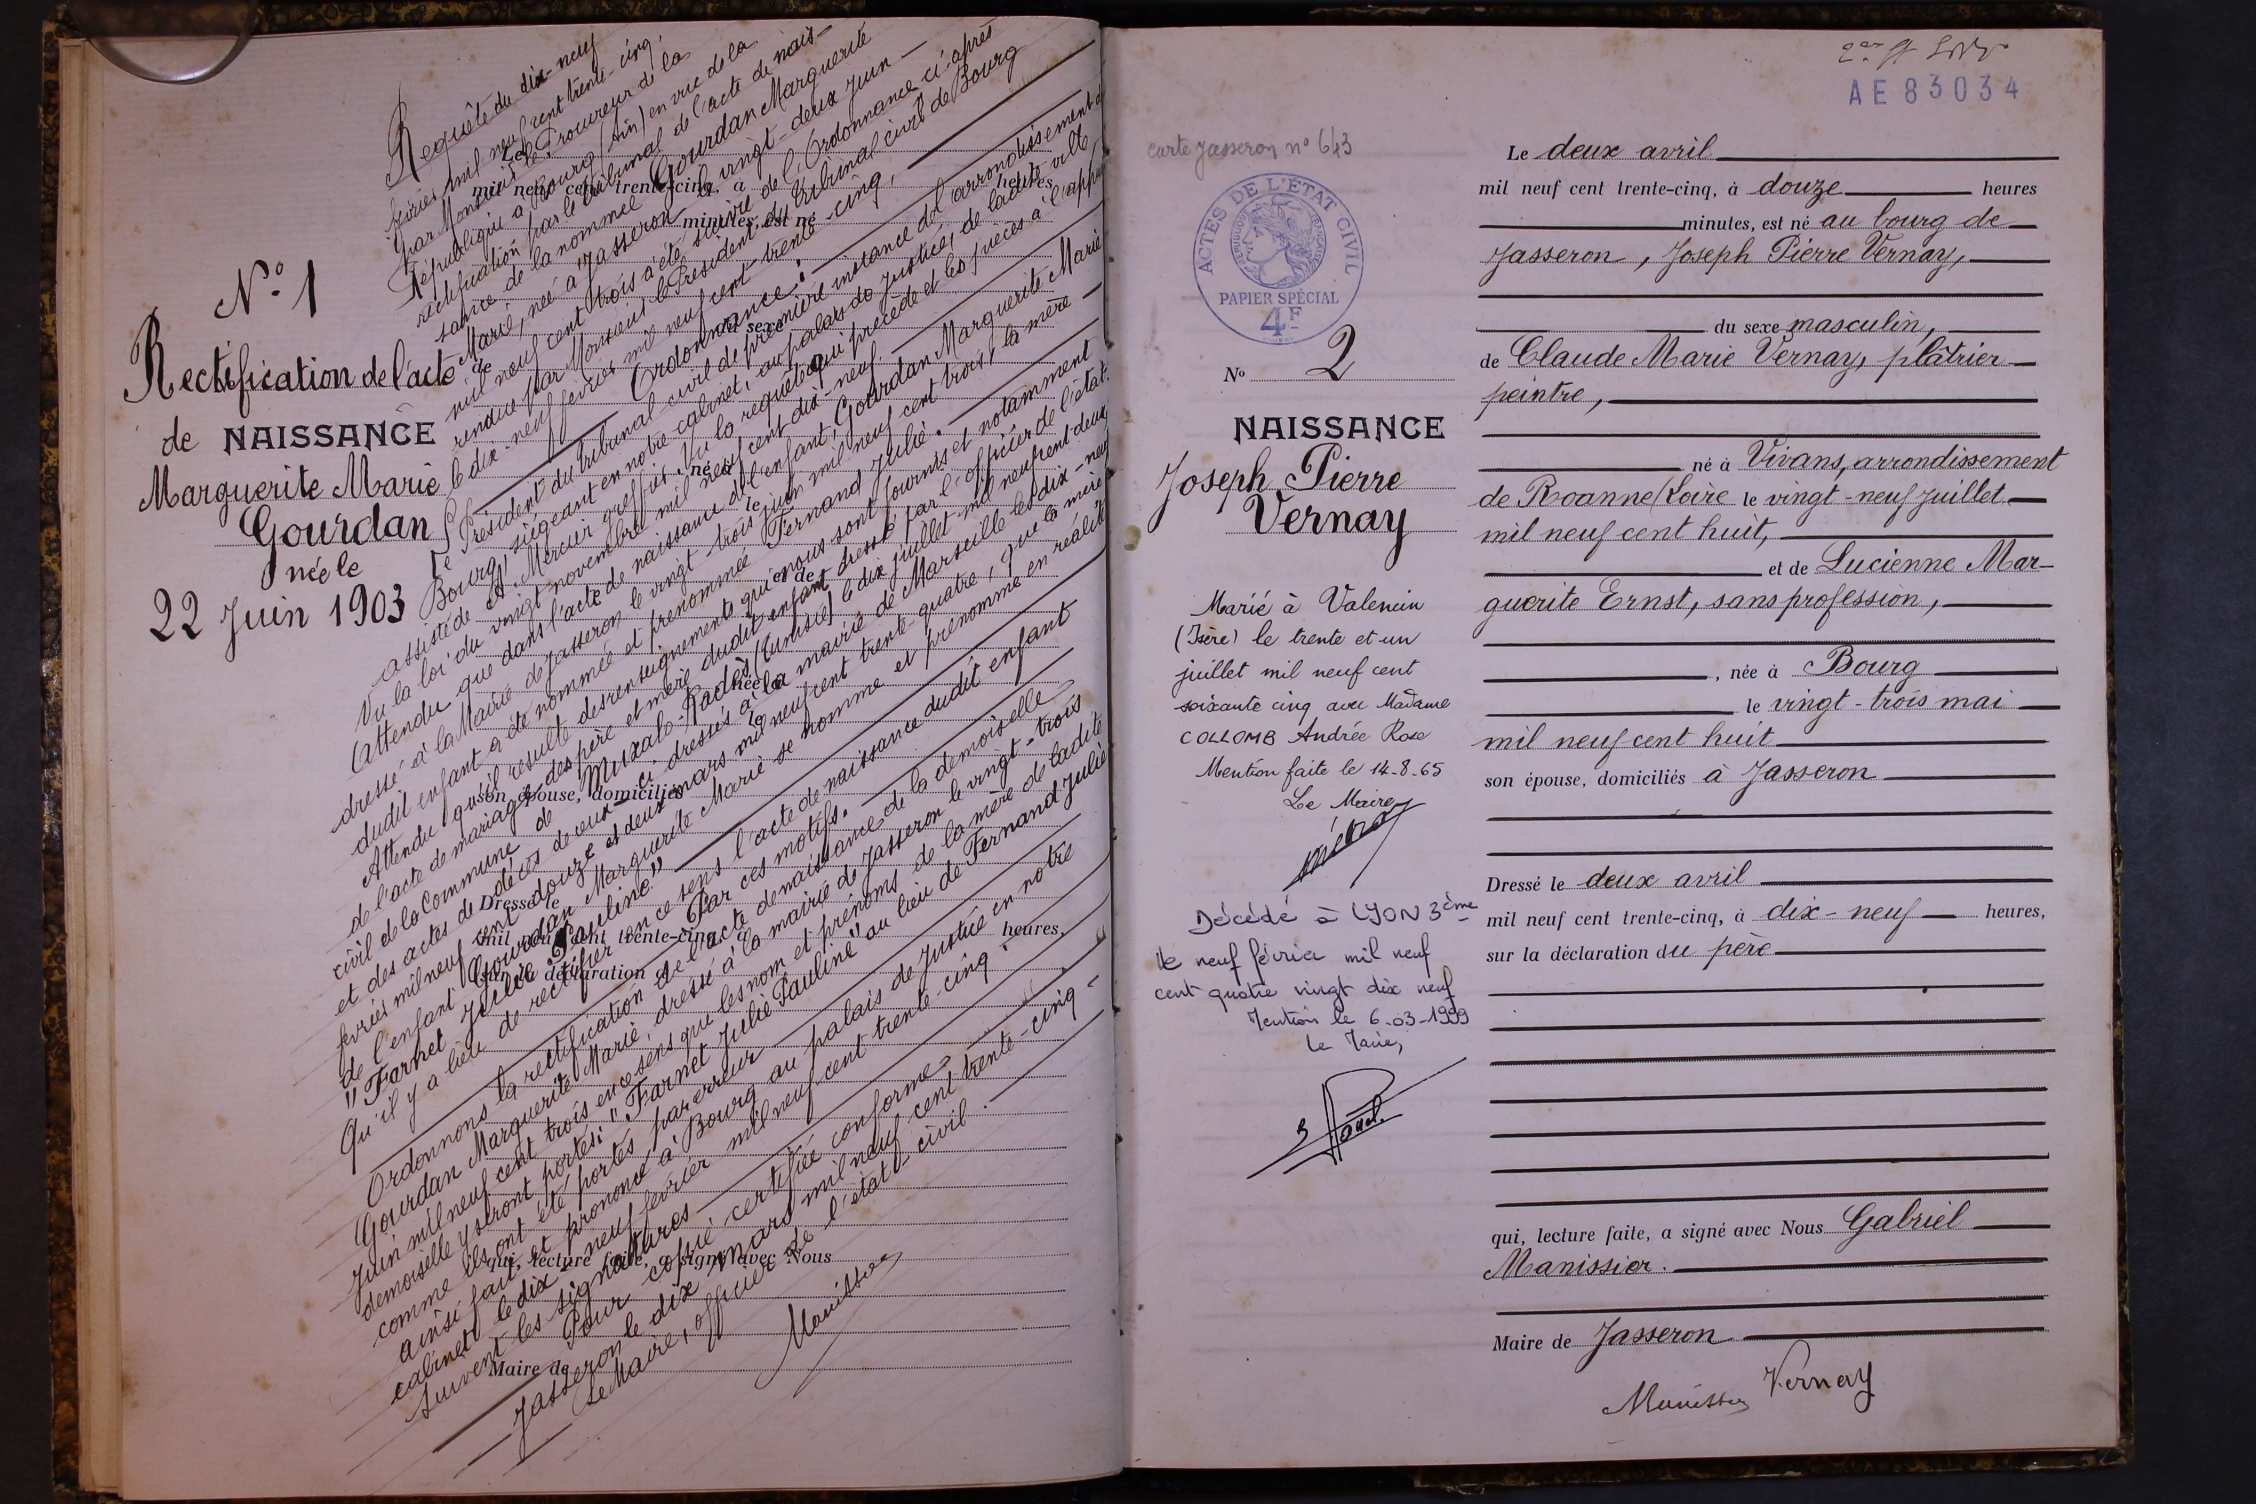 N° 1
Rectification de l'acte
de NAISSANCE
Marguerite Marie
Gourdan
née le
22 Juin 1903
Requête du dix-neuf
février mil neuf cent trente-cinq,
par Monsieur le Procureur de la
République à Bourg (Ain) en vue de la
rectification par le tribunal de l'acte de nais-
sance de la nommée Gourdan Marguerite
Marie, née à Jasseron le vingt-deux Juin
mil neuf cent trois a été suivie de l'Ordonnance ci-après
rendue par Monsieur le Président du Tribunal civil de Bourg
le dix-neuf février mil neuf cent trente-cinq,
Ordonnance:
Président du tribunal civil de première instance de l'arrondissement de
Bourg, siégeant en notre cabinet, au palais de Justice, de ladite ville,
assisté de A. Mercier greffier. Vu la requête qui précède et les pièces à l'appui
Vu la loi du vingt novembre mil neuf cent dix-neuf.
Attendu que dans l'acte de naissance de l'enfant, Gourdan Marguerite Marie
dressé à la Mairie de Jasseron le vingt trois juin mil neuf cent trois, la mère
dudit enfant a été nommée et prénommée Fernand Julie.
Attendu qu'il résulte des renseignements qui nous sont fournis et notamment
de l'acte de mariage des père et mère dudit enfant dressé par l'officier de l'état
civil de la Commune de Maxula-Radès (Tunisie) le dix juillet mil neuf cent deux
et des actes de décès de ceux-ci dressés à la mairie de Marseille les dix-neuf
février mil neuf cent douze et deux mars mil neuf cent trente-quatre, que la mère
de l'enfant Gourdan Marguerite Marie se nomme et prénomme en réalité
"Farnet Julie Pauline"
Qu'il y a lieu de rectifier en ce sens l'acte de naissance dudit enfant
Par ces motifs.
Ordonnons la rectification de l'acte de naissance de la demoiselle
Gourdan Marguerite Marie, dressé à la mairie de Jasseron le vingt-trois
Juin mil neuf cent trois en ce sens que les nom et prénoms de la mère de ladite
demoiselle y seront portés: "Farnet Julie Pauline" au lieu de Fernand Julie
comme ils ont été portés par erreur
ainsi fait et prononcé à Bourg au palais de Justice en notre
cabinet le dix-neuf février mil neuf cent trente-cinq.
Suivent les signatures
Pour copie certifiée conforme
Jasseron le dix mars mil neuf cent trente-cinq
Le Maire, officier de l'état-civil.
Manissier
mil neuf cent trente-cinq, à heures
minutes, est né
du sexe
de
né à
le
et de
née à
le
son épouse, domiciliés
Dressé le
mil neuf cent trente-cinq, à heures,
sur la déclaration d
qui, lecture faite, a signé avec Nous
Maire de
AE 83034
carte Jasseron n° 643
ACTES DE L'ÉTAT CIVIL
PAPIER SPÉCIAL
4F
N° 2
NAISSANCE
Joseph Pierre
Vernay
Marié à Valencin
(Isère) le trente et un
juillet mil neuf cent
soixante cinq avec Madame
COLLOMB Andrée Rose
Mention faite le 14-8-65
Le Maire
Décédé à LYON 3ème
le neuf février mil neuf
cent quatre vingt dix neuf
Mention le 6-03-1999
Le Maire,
Le deux avril
mil neuf cent trente-cinq, à douze heures
minutes, est né au bourg de
Jasseron, Joseph Pierre Vernay,
du sexe masculin,
de Claude Marie Vernay, plâtrier
peintre,
né à Vivans, arrondissement
de Roanne (Loire le vingt-neuf juillet
mil neuf cent huit,
et de Lucienne Mar-
guerite Ernst, sans profession,
, née à Bourg
le vingt-trois mai
mil neuf cent huit
son épouse, domiciliés à Jasseron
Dressé le deux avril
mil neuf cent trente-cinq, à dix-neuf heures,
sur la déclaration du père
qui, lecture faite, a signé avec Nous Gabriel
Manissier.
Maire de Jasseron
Manissier Vernay